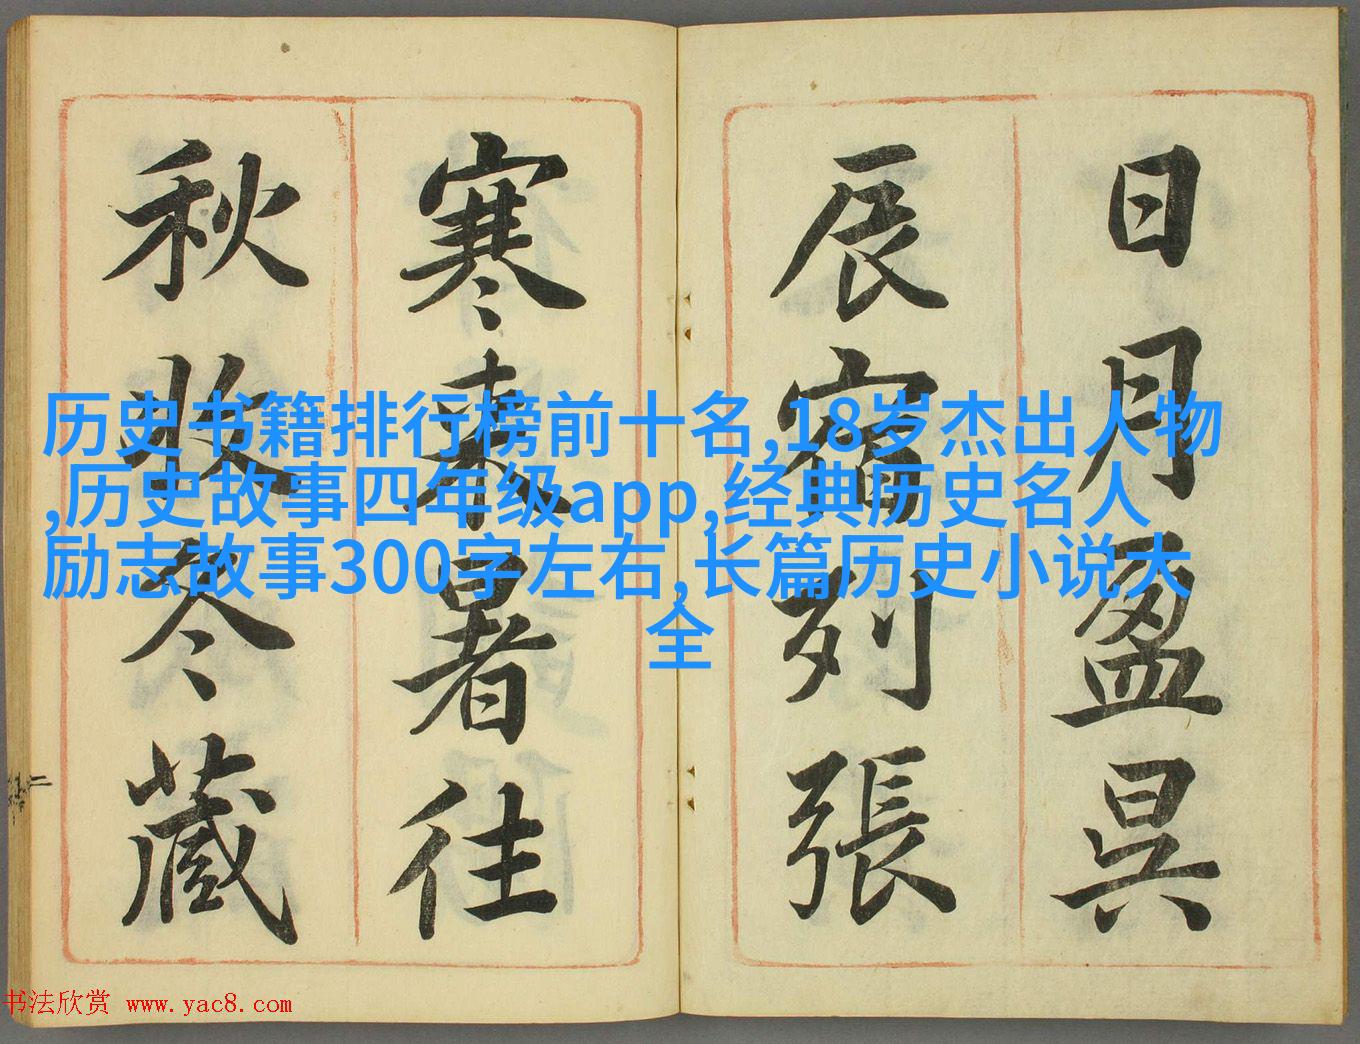 日月盈昃
辰宿列張
寒來暑往
秋收冬藏
历史书籍排行榜前十名,18岁杰出人物
,历史故事四年级app,经典历史名人
励志故事300字左右,长篇历史小说大
全
二
书法欣赏 www.yac8.com